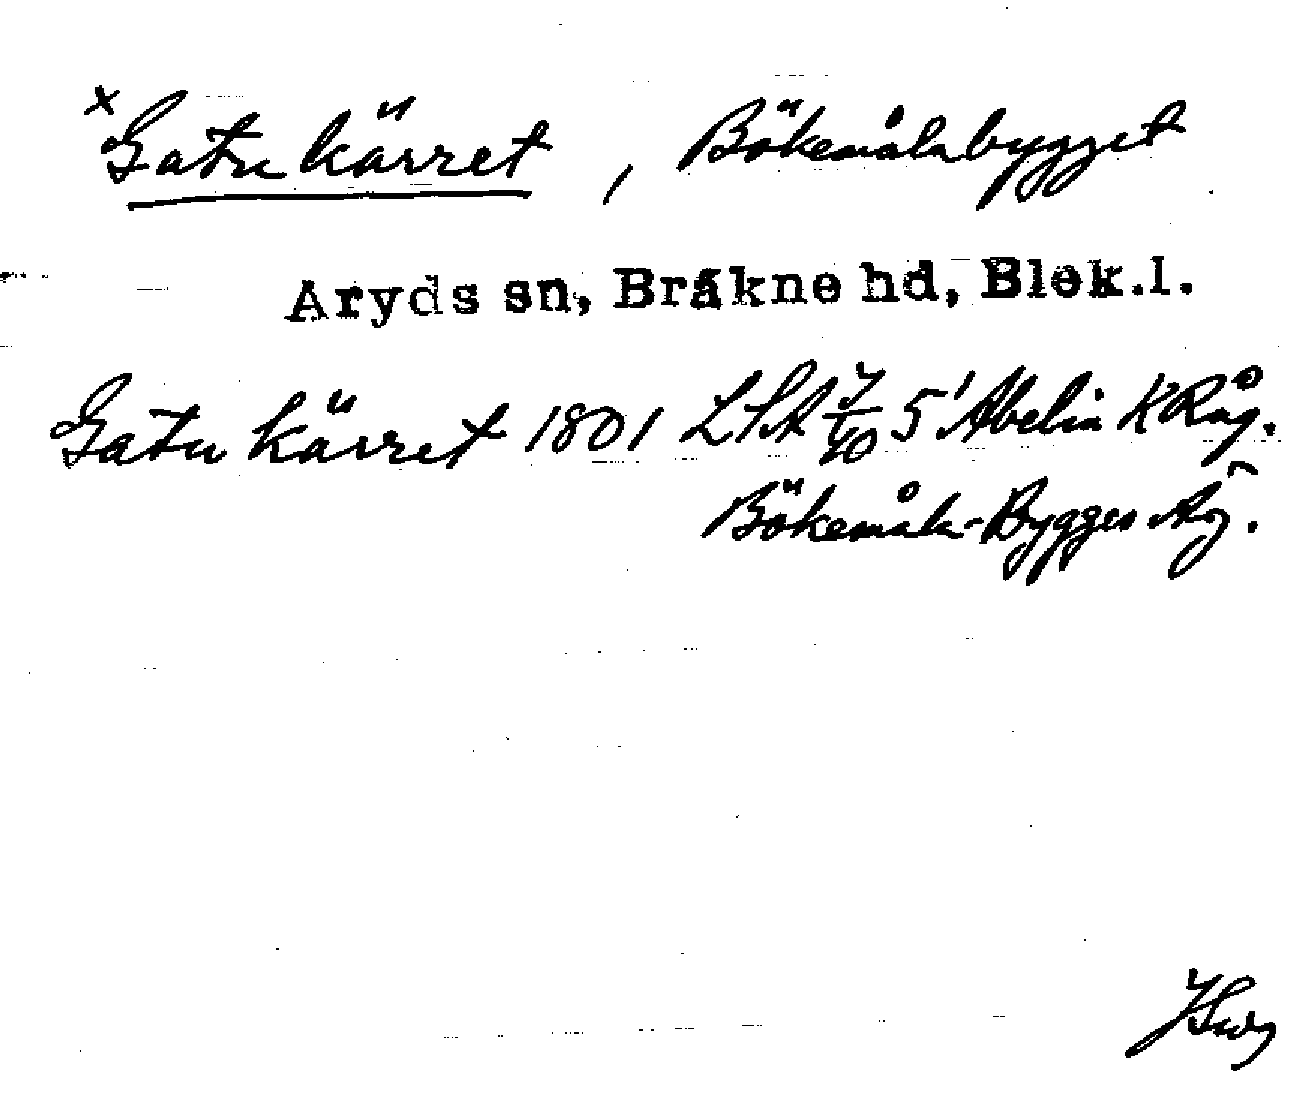 x Gatukärret, Bökemålabygget
Aryds sn, Bräkne hd, Blek.l.
Gatu kärret 1801 LSA 7/40 5' Abelin KRåg.
Bökemåla-Bygges Äg.